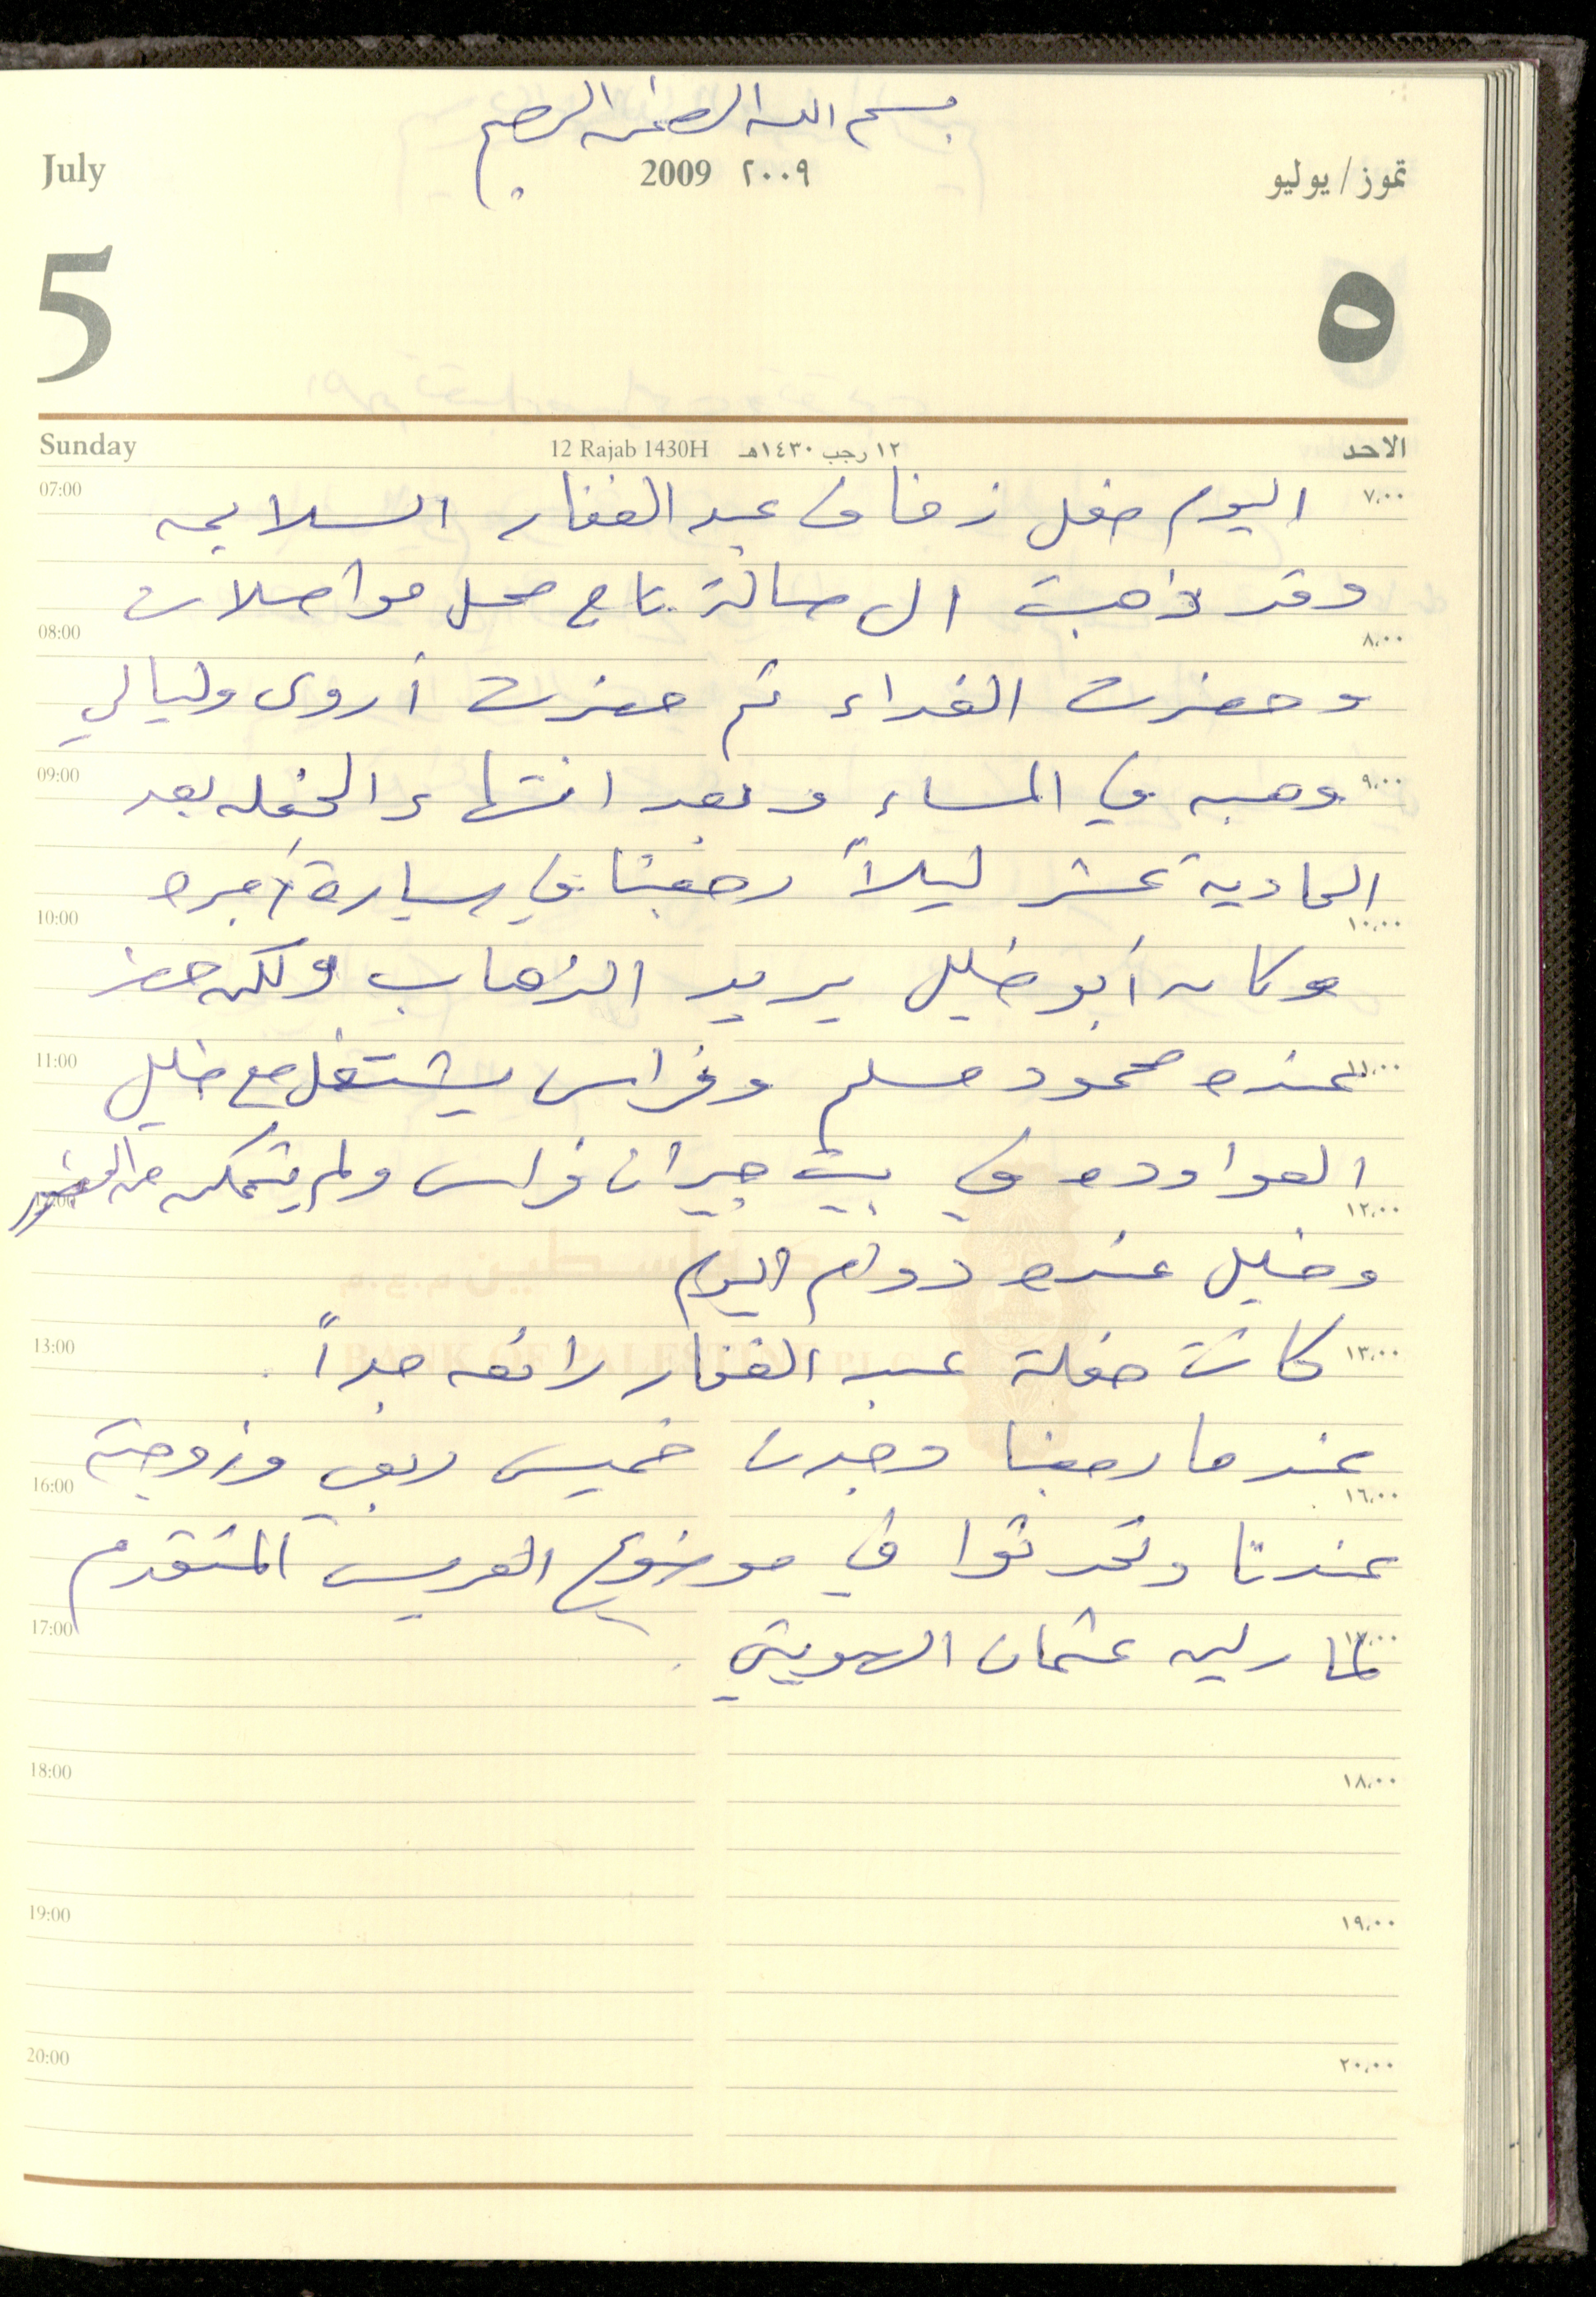 بسم الله الرحمن الرحيم
July 2009 ٢٠٠٩ تموز/يوليو
5 ٥
Sunday 12 Rajab 1430H ١٢ رجب ١٤٣٠هـ الاحد
07:00 ٧,٠٠
اليوم حفل زفاف عبد الغفار السلايمه
وقد ذهبت الى صالة تاج محل مواصلات
08:00 ٨,٠٠
وحضرت الغداء ثم حضرت أروى وليالي
09:00 ٩,٠٠
وهبه في المساء وبعد انتهاء الحفله بعد
الحادية عشر ليلاً رجعنا في سيارة أجره
10:00 ١٠,٠٠
وكان أبو خليل يريد الذهاب ولكن حضر
11:00 ١١,٠٠
عنده محمود مسلم وفراس يشتغل مع خليل
العواوده في بيت جيران فراس ولم يتمكن من الحضور
12:00 ١٢,٠٠
وخليل عنده دوام اليوم
13:00 ١٣,٠٠
كانت حفلة عبد الغفار رائعه جداً.
عندما رجعنا وجدت خميس ربعي وزوجته
16:00 ١٦,٠٠
عندنا وتحدثوا في موضوع العريس المتقدم
17:00 ١٧,٠٠
لمارليه عثمان الهويتي.
18:00 ١٨,٠٠
19:00 ١٩,٠٠
20:00 ٢٠,٠٠
BANK OF PALESTINE PLC